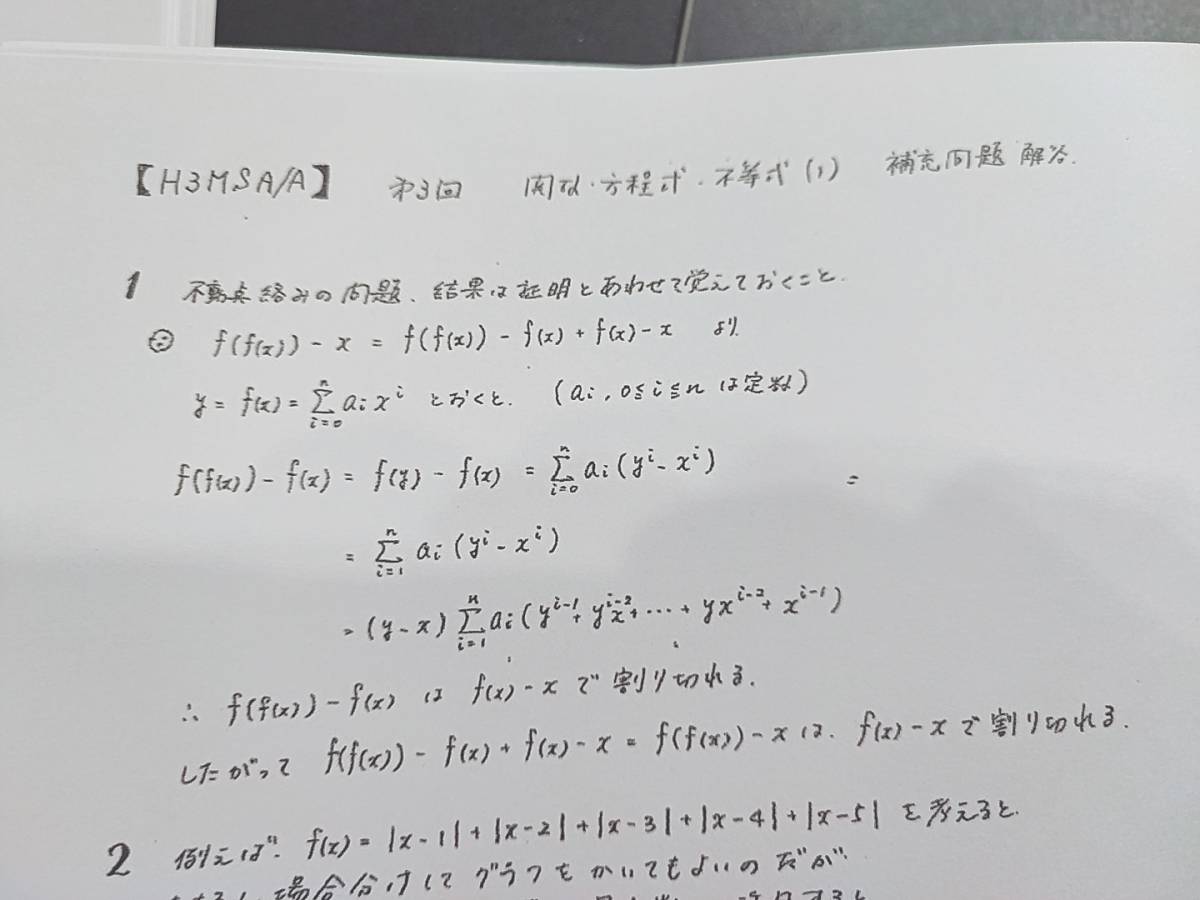 【H3MSA/A】 第3回 関数・方程式・不等式(1) 補充問題 解答.
1 不動点絡みの問題、結果は証明とあわせて覚えておくこと.
∵ f(f(x)) - x = f(f(x)) - f(x) + f(x) - x より
y = f(x) = Σ_{i=0}^{n} a_i x^i とおくと. (a_i, 0≦i≦n は定数)
f(f(x)) - f(x) = f(y) - f(x) = Σ_{i=0}^{n} a_i (y^i - x^i) =
= Σ_{i=1}^{n} a_i (y^i - x^i)
= (y-x) Σ_{i=1}^{n} a_i (y^{i-1} + y^{i-2}x + … + yx^{i-2} + x^{i-1})
∴ f(f(x)) - f(x) は f(x) - x で割り切れる.
したがって f(f(x)) - f(x) + f(x) - x = f(f(x)) - x は、f(x) - x で割り切れる.
2 例えば、f(x) = |x-1| + |x-2| + |x-3| + |x-4| + |x-5| を考えると.
場合分けしてグラフをかいてもよいのだが